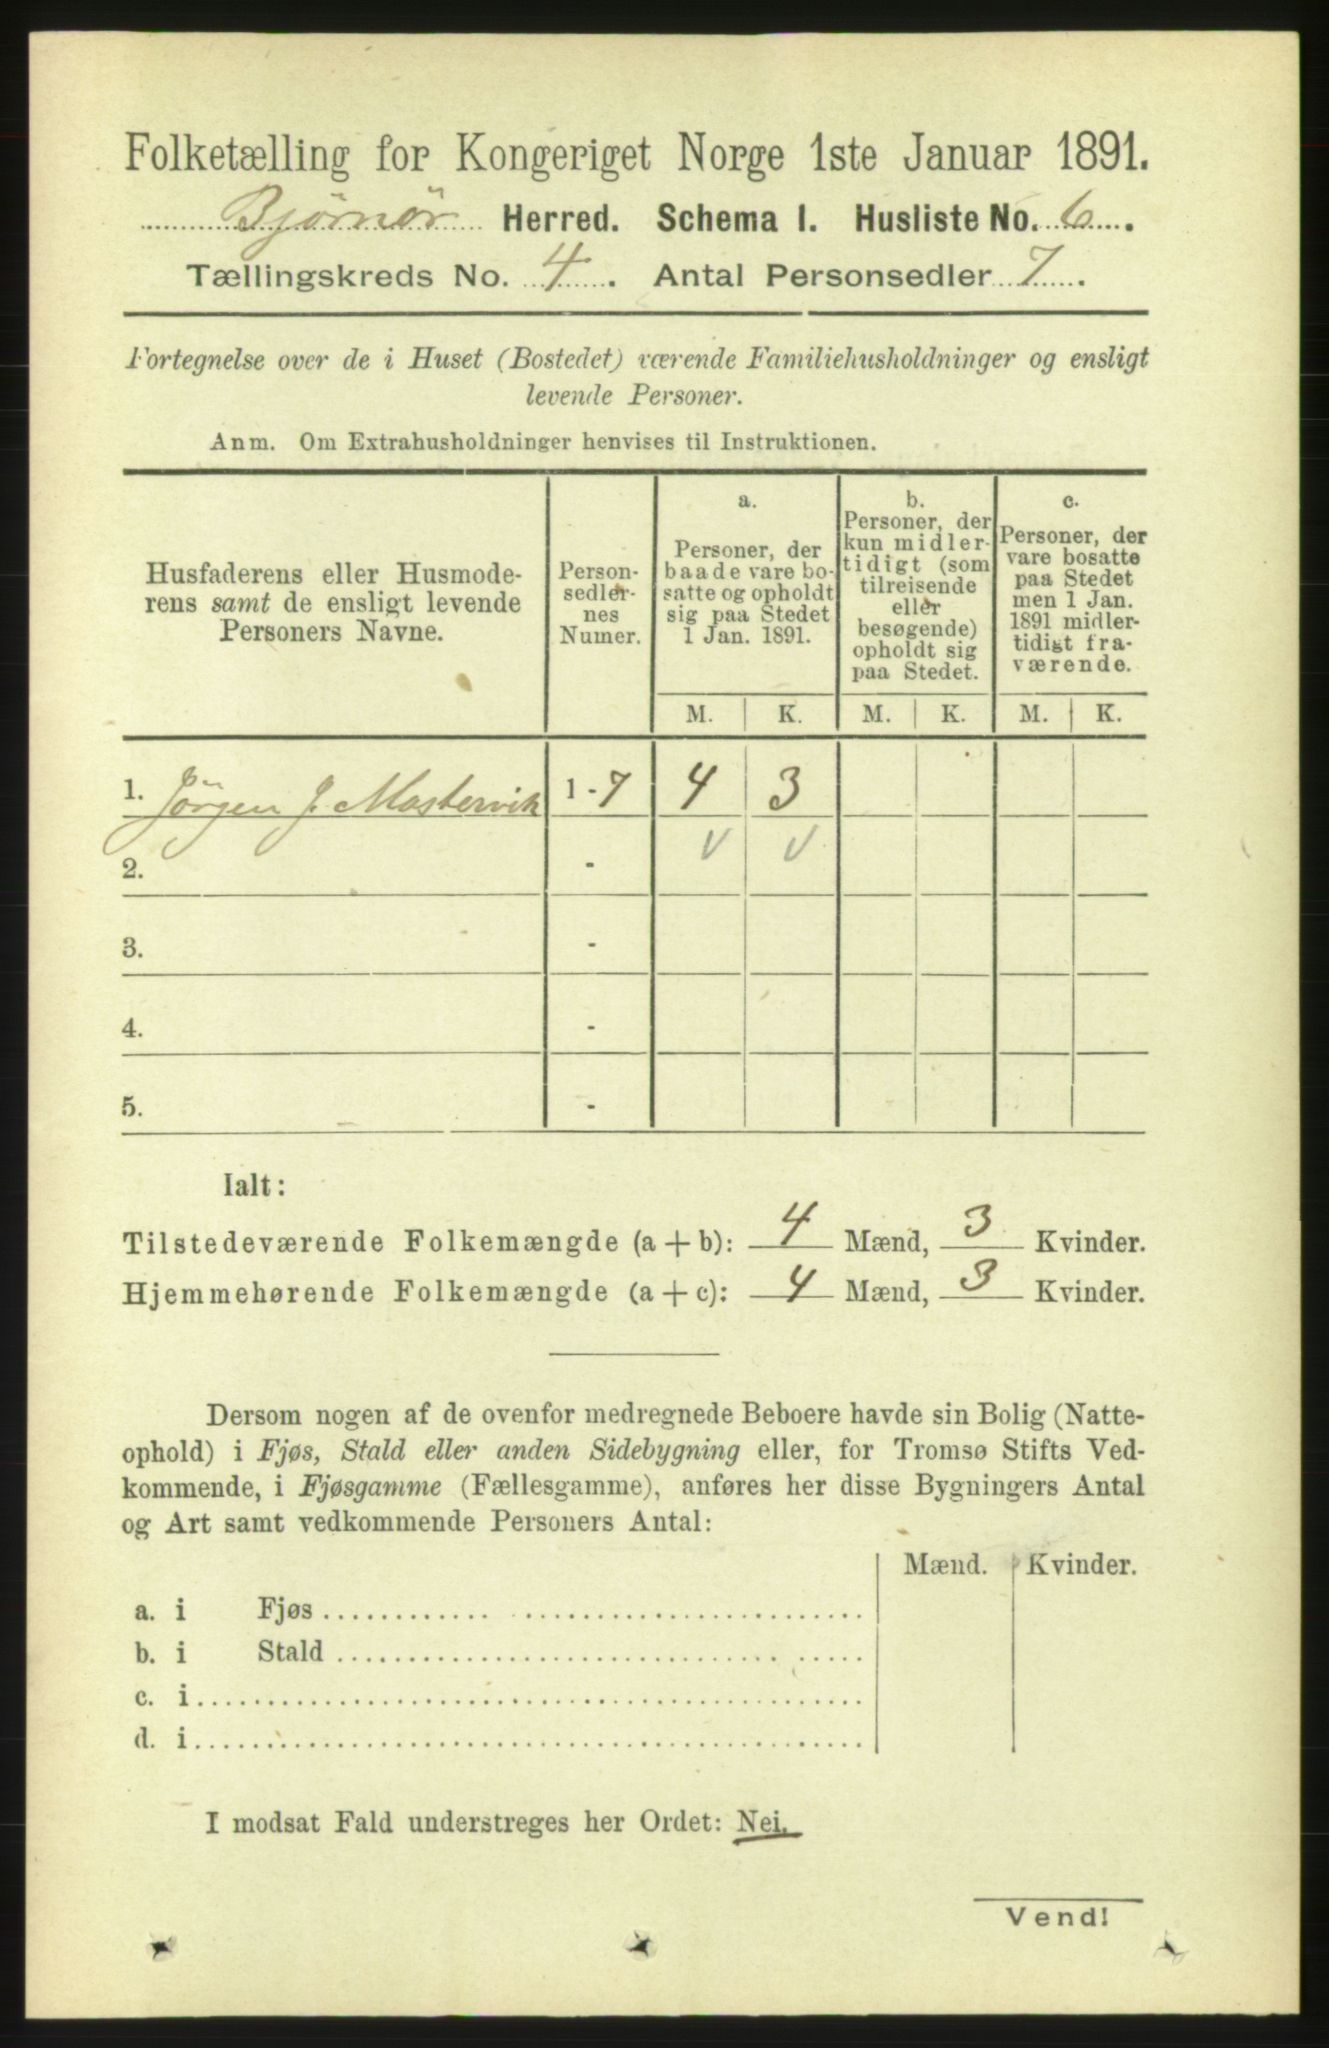 Folketælling for Kongeriget Norge 1ste Januar 1891.
Bjørnør Herred. Schema I. Husliste No. 6.
Tællingskreds No. 4. Antal Personsedler 7.
Fortegnelse over de i Huset (Bostedet) værende Familiehusholdninger og ensligt
levende Personer.
Anm. Om Extrahusholdninger henvises til Instruktionen.
Husfaderens eller Husmode-
rens samt de ensligt levende
Personers Navne.
Person-
sedler-
nes
Numer.
a.
Personer, der
baade vare bo-
satte og opholdt
sig paa Stedet
1 Jan. 1891.
b.
Personer, der
kun midler-
tidigt (som
tilreisende
eller
besøgende)
opholdt sig
paa Stedet.
c.
Personer, der
vare bosatte
paa Stedet
men 1 Jan.
1891 midler-
tidigt fra-
værende.
M. K. M. K. M. K.
1. Jörgen J. Mastervik 1-7 4 3
2. - V V
3. -
4. -
5. -
Ialt:
Tilstedeværende Folkemængde (a + b): 4 Mænd, 3 Kvinder.
Hjemmehørende Folkemængde (a + c): 4 Mænd, 3 Kvinder.
Dersom nogen af de ovenfor medregnede Beboere havde sin Bolig (Natte-
ophold) i Fjøs, Stald eller anden Sidebygning eller, for Tromsø Stifts Ved-
kommende, i Fjøsgamme (Fællesgamme), anføres her disse Bygningers Antal
og Art samt vedkommende Personers Antal:
Mænd. Kvinder.
a. i Fjøs
b. i Stald
c. i
d. i
I modsat Fald understreges her Ordet: Nei.
Vend!